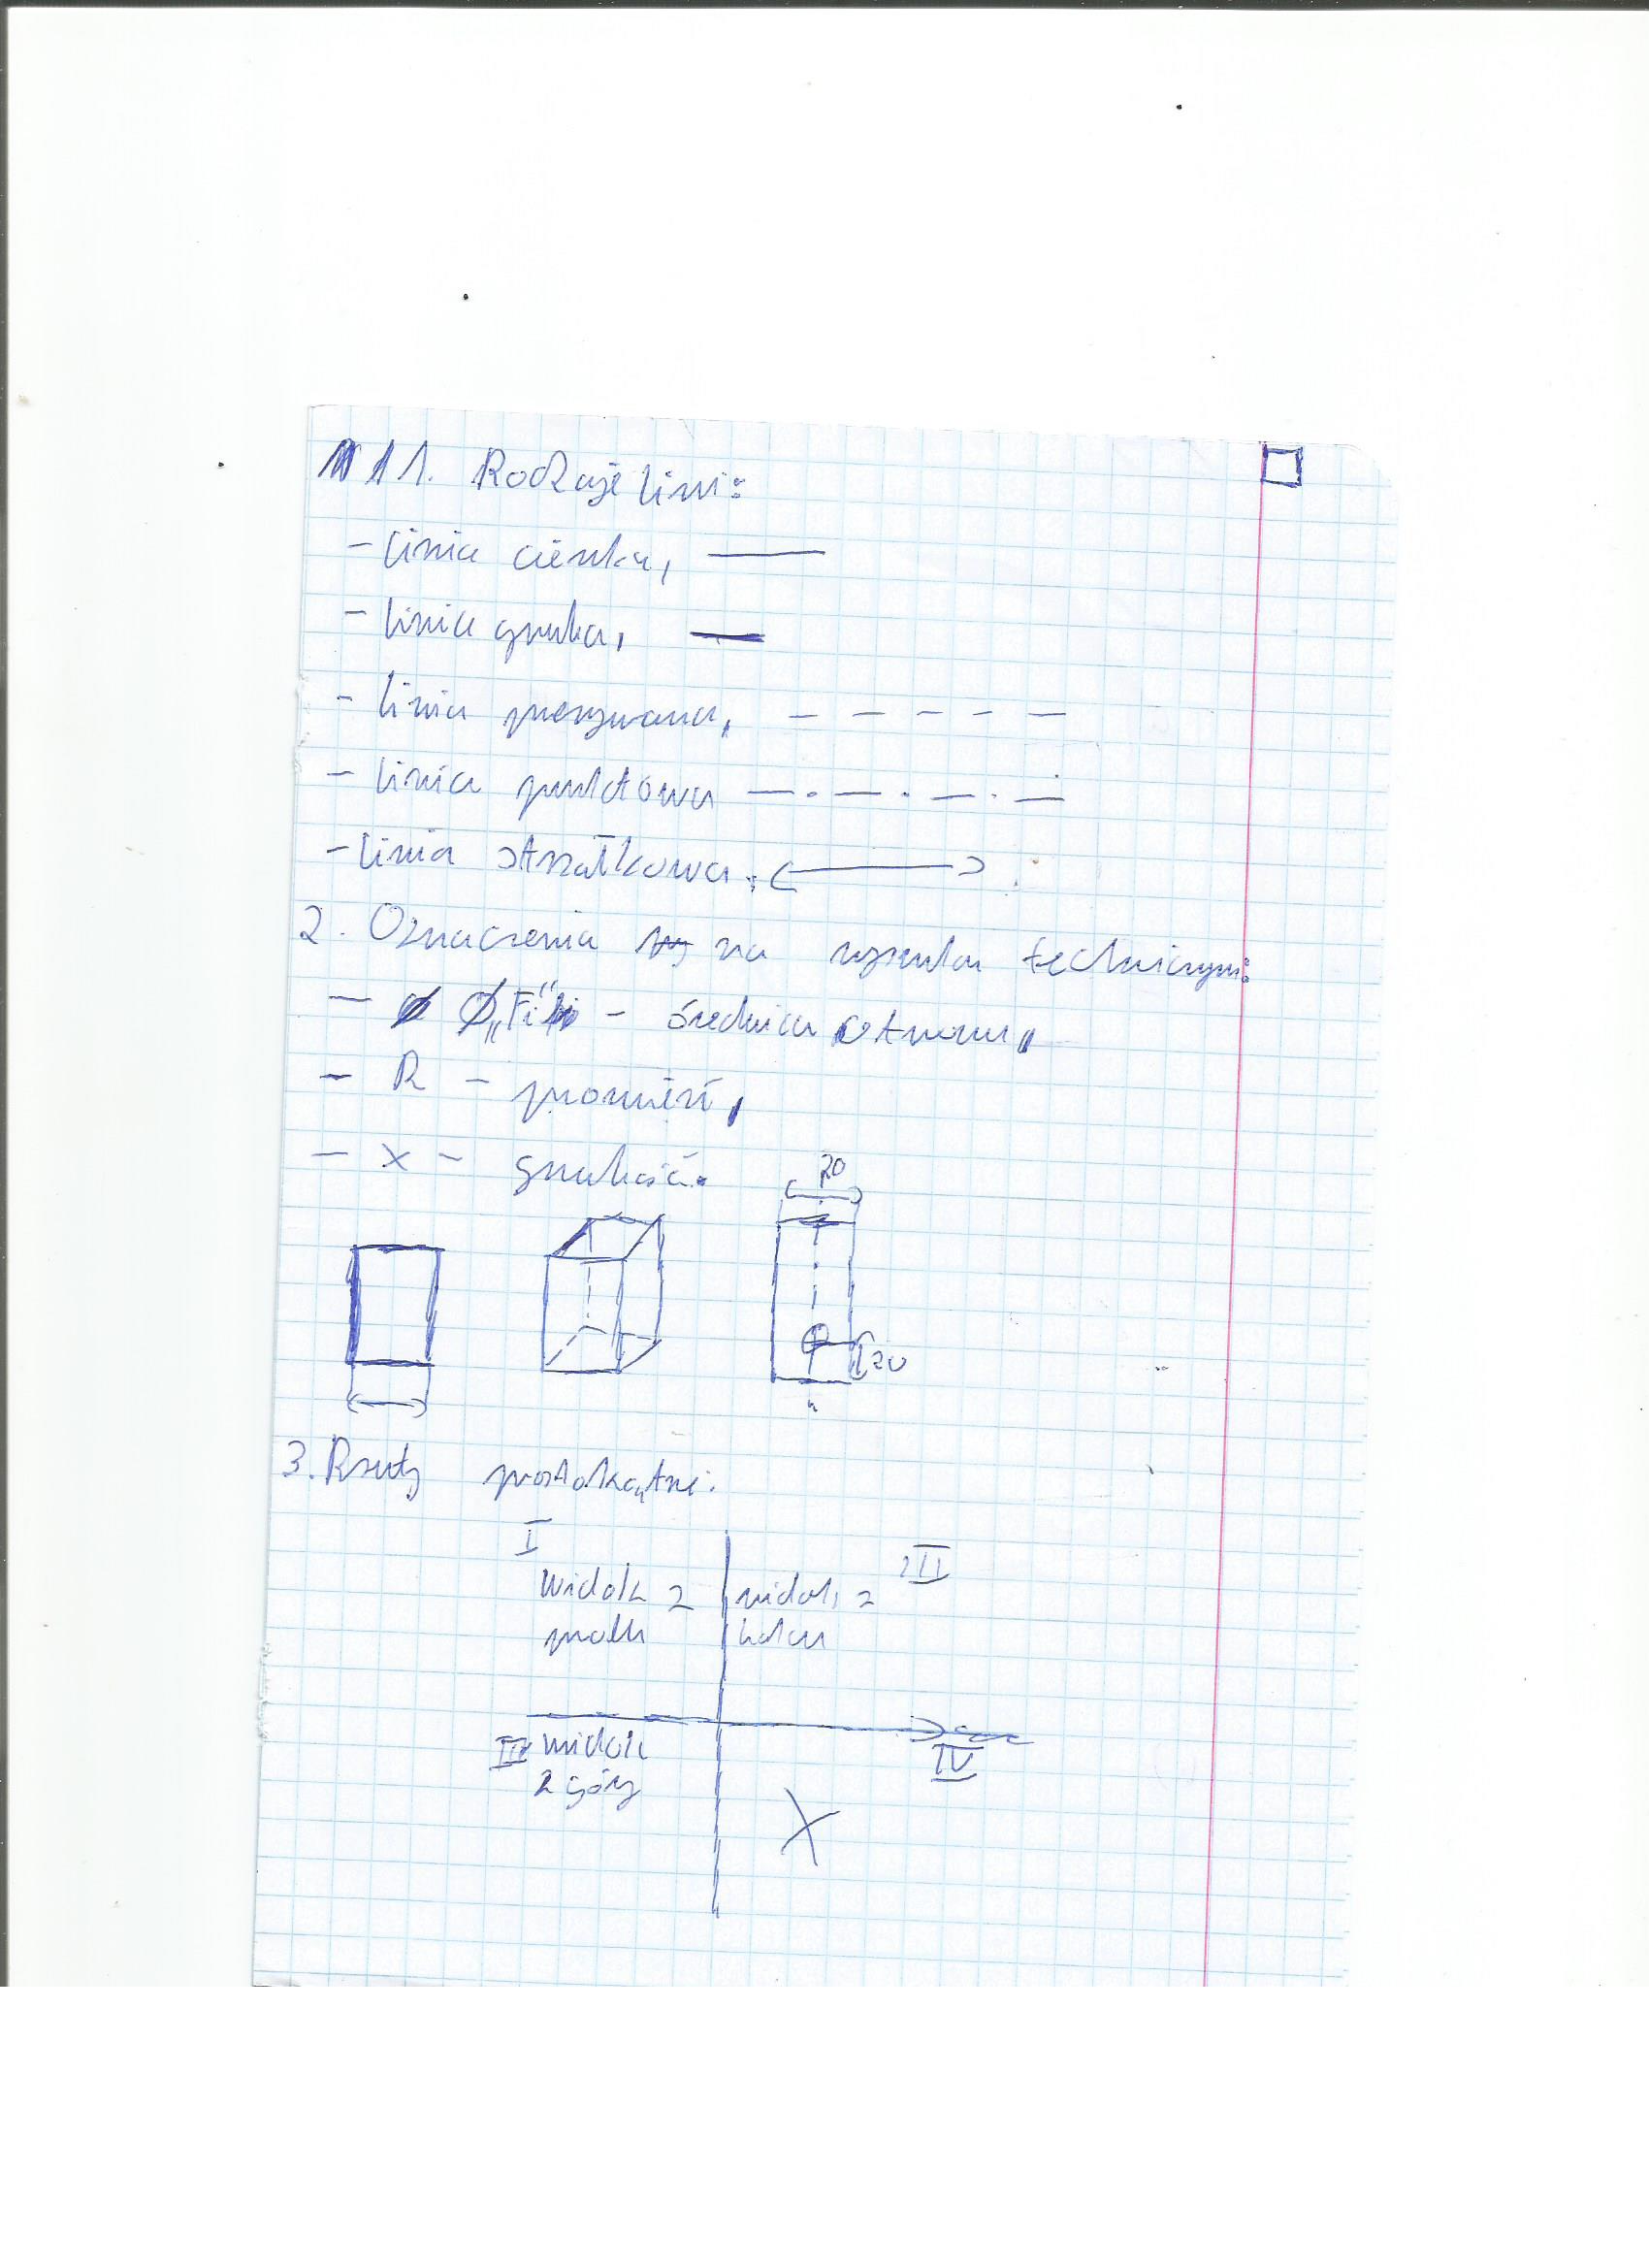 1. Rodzaje lini:
- linia cienka,
- linia gruba,
- linia przerywana,
- linia punktowa
- linia strzałkowa.
2. Oznaczenia na rysunku technicznym:
- Ø „Fi” - średnica otworu,
- R - promień,
- x - grubość.
20
20
3. Rzuty prostokątne:
I
II
widok z
przodu
widok z
boku
III widok
z góry
IV
X